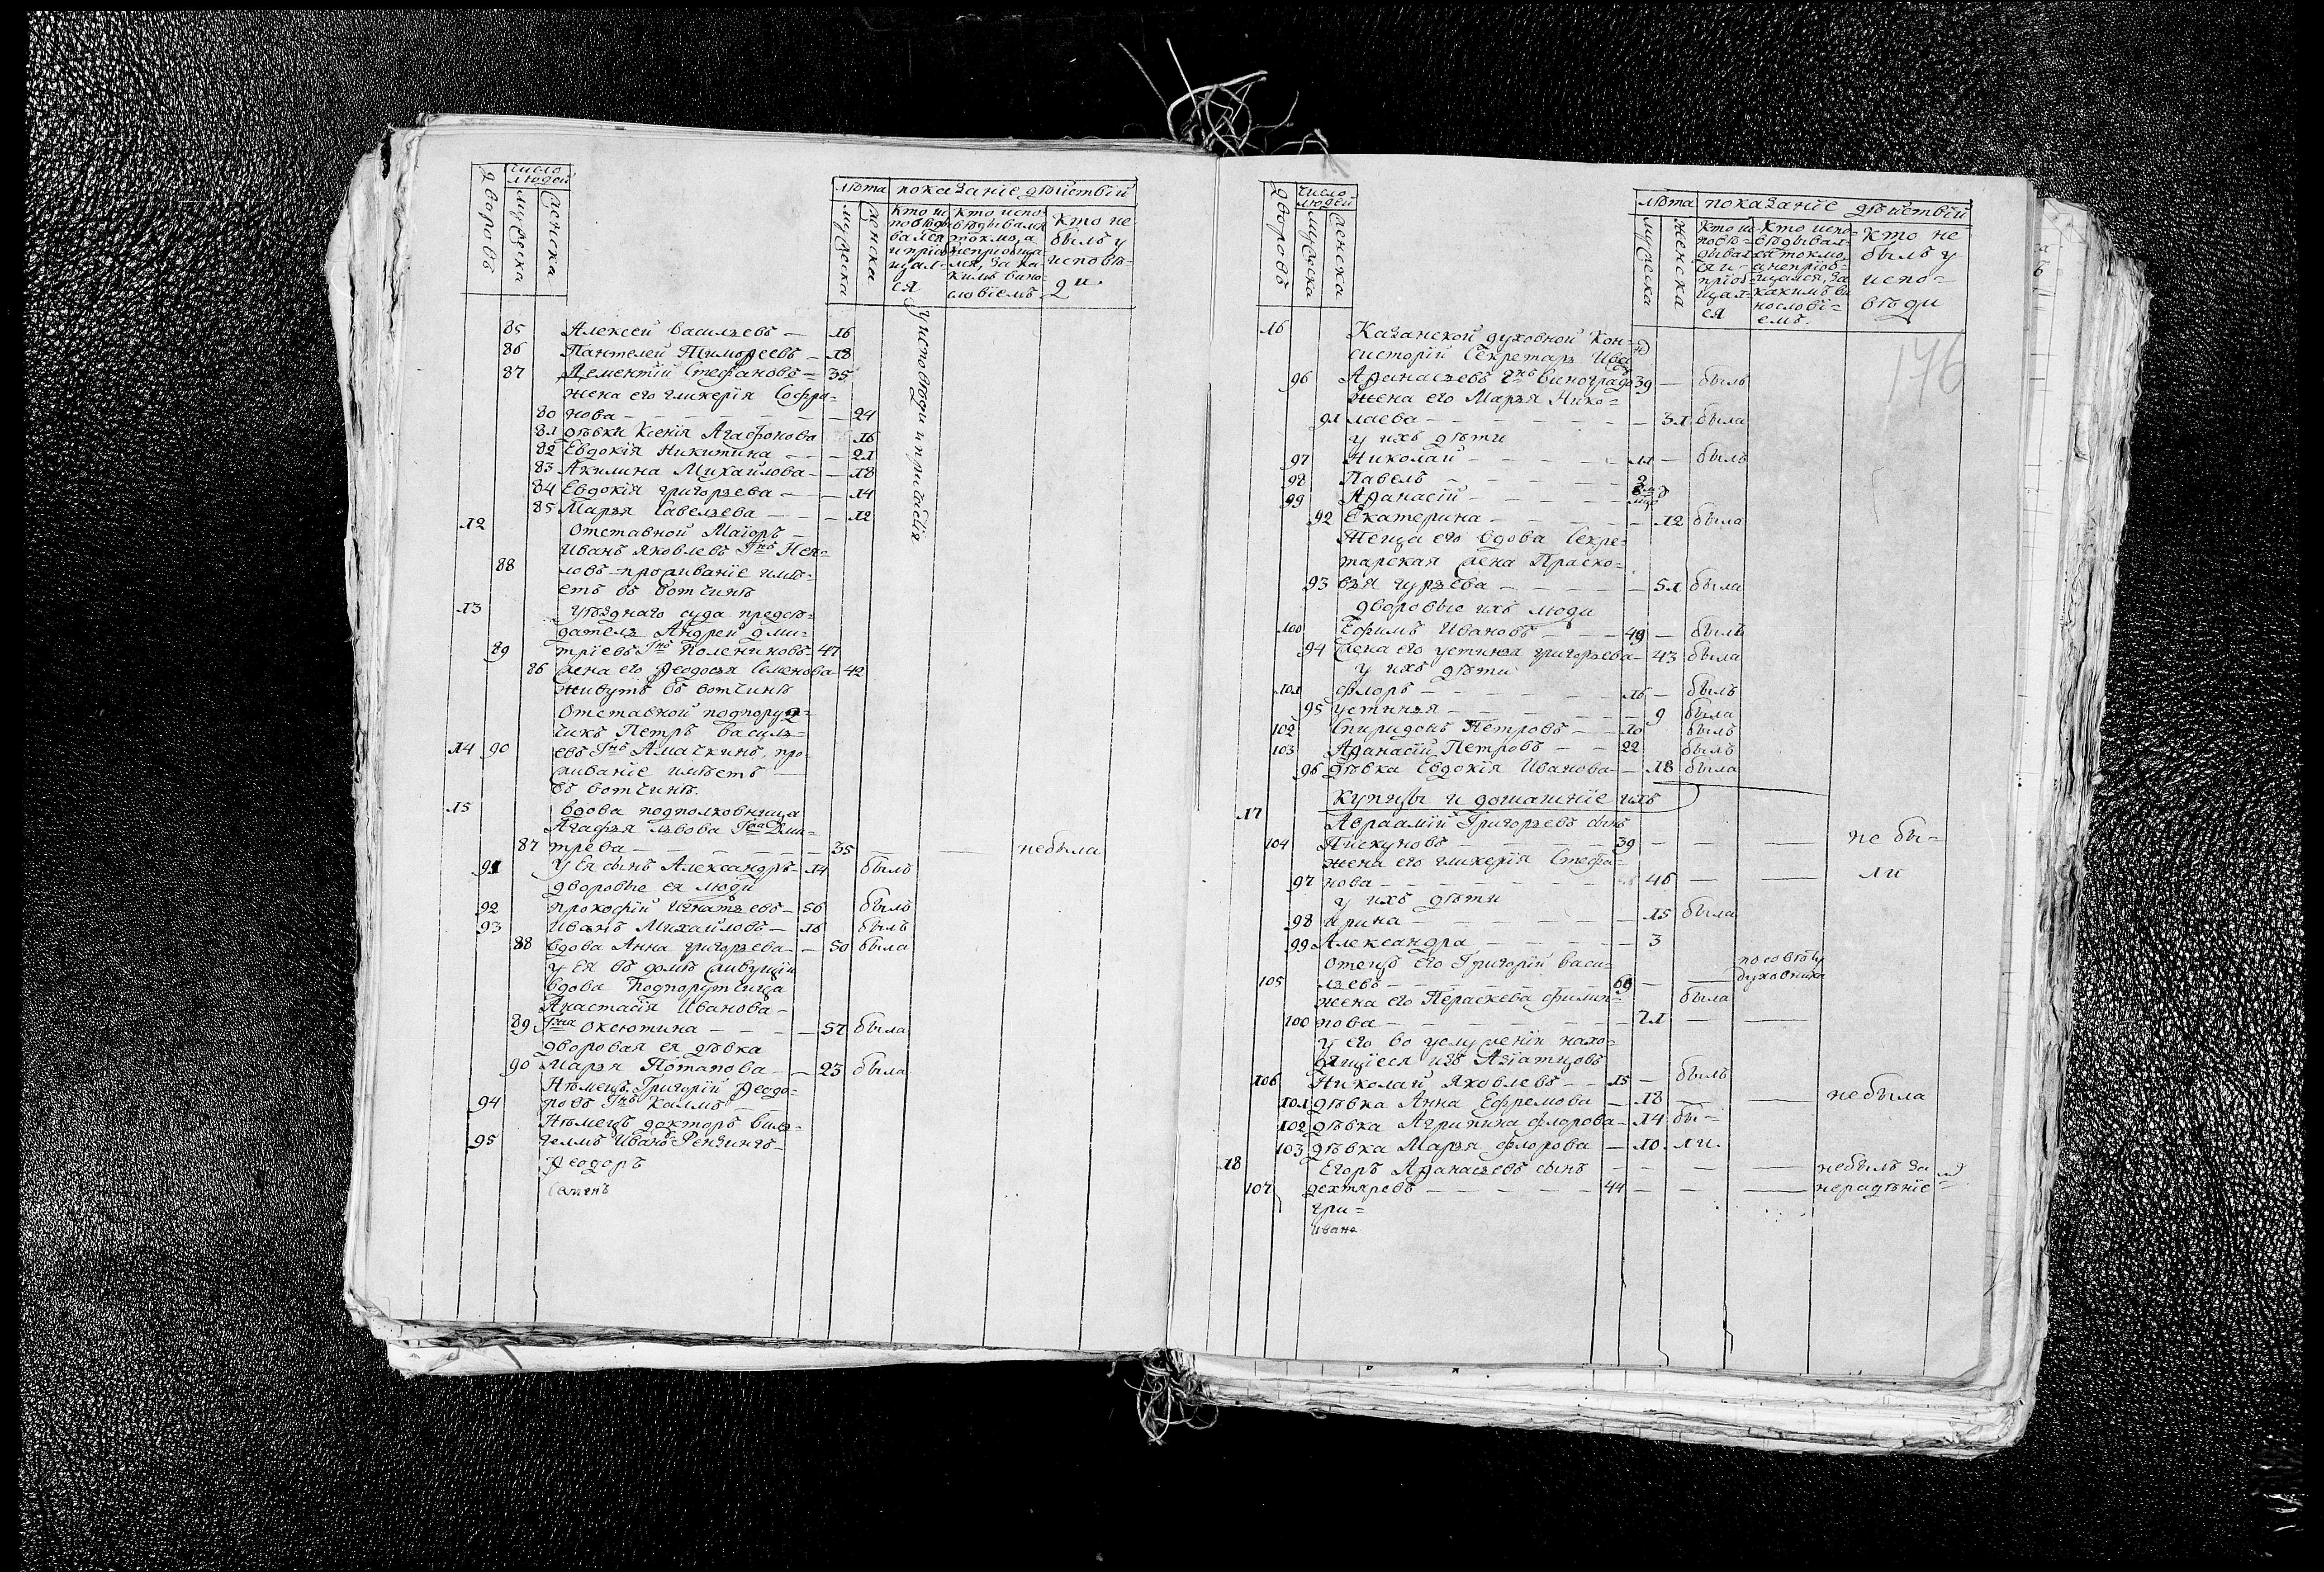 дворовъ
число
людей
мужеска
женска
лѣта показанїе дѣйствїй
мужеска
женска
кто ис
повѣды
вался
и прїоб
щал-
ся
кто испо-
вѣдывался
токмо, а
непрїобща
лся, за ка
кимъ вино-
словїемъ
кто не
былъ у
исповѣ-
ди
у исповѣди и причастїя
85 Алексей Васильевъ — 16
86 Пантелей Тимофеевъ — 18
87 Дементїй Стефановъ — 35
жена его гликерїя Софро-
80 нова — 24
81 дѣвки Ксенїя Агафонова 16
82 Евдокїя Никитина — — 21
83 Акилина Михайлова — — 18
84 Евдокїя григорьева — — 14
85 Марья Савельева — — 12
12 Отставной Маїоръ —
Иванъ Яковлевъ Гнъ
88 ловъ проживанїе имѣ-
етъ въ вотчинѣ
13 уѣзднаго суда предсѣ-
датель Андрей дми-
89 трїевъ Гнъ Полениновъ 47
86 жена его Ѳеодосья Семенова 42
живутъ въ вотчинѣ
Отставной подпору-
чикъ Петръ Василь-
14 90 евъ Гнъ Амачкинъ, про-
живанїе имѣетъ —
въ вотчинѣ.
15 вдова подполковница
Агафья львова Гжа Дми-
87 трева — — — 35 — небыла
91 У Ея сынъ Александръ 14 былъ
дворовые ея люди
92 прокофїй Игнатьевъ — 56 былъ
93 Иванъ Михайловъ — 16 былъ
88 вдова Анна григорьева — 50 была
у Ея въ домѣ живущїи
вдова Подпорутчица
Анастасїя Иванова —
89 Гжа Оксютина — — — 57 была
дворовая ея дѣвка
90 Марья Потапова — — 23 была
Нѣмецъ Григорїй Ѳеодо-
94 ровъ Гнъ Каллъ —
Нѣмецъ докторъ Виль-
95 гелмъ Иванъ Рензингъ —
Ѳеодоръ
Семенъ
дворовъ
число
людей
мужеска
женска
лѣта показанїе дѣйствїй
мужеска
женска
кто ис
повѣ-
дывал
ся и
прїоб-
щал-
ся
кто испо-
вѣдывал-
ся токмо,
а непрїоб-
щался, за
какимъ ви
нословї-
емъ.
кто не
былъ у
испо-
вѣди
176
16 Казанской духовной Кон-
систорїи Секретарь Иванъ
96 Аѳанасьевъ Гнъ Виноградо 39 — былъ
жена его Марья Нико-
91 лаева — — — 31 была
у ихъ дѣти
97 Николай — — — 11 — былъ
98 Павелъ — — — 2
99 Аѳанасїй — — —
92 Екатерина — — — 12 была
Теща его вдова Секре-
тарская жена Праско-
93 вья гурьева — — — 51 была
дворовые ихъ люди
100 Ефимъ Ивановъ — — 49 — былъ
94 жена его устинья григорьева — 43 была
у ихъ дѣти
101 флоръ — — — 16 — былъ
95 устинья — — — 9 была
102 Спиридонъ Петровъ — — 10 былъ
103 Аѳанасїй Петровъ — — 22 былъ
96 дѣвка Евдокїя Иванова — 18 была
Купцы и домашнїе ихъ
17 Авраамїй Григорьевъ сынъ
104 Пискуновъ — — — 39 — — — не бы-
жена его гликерїя Стефа-
97 нова — — — 46 — — ли
у ихъ дѣти
98 ирина — — — 15 была
99 Александра — — — 3
отецъ его Григорїй Васи-
105 льевъ — — — 69 — — по совѣту
духовника
жена его Параскева филип- была
100 пова — — — 71 — —
у его во услуженїи нахо-
дящїеся изъ Азїатцовъ
106 Николай Яковлевъ — — 15 — былъ
101 дѣвка Анна Ефремова — 18 — — небыла
102 дѣвка Агрипина флорова — 14 бы-
103 дѣвка Марья флорова — 10 ли.
18 Егоръ Аѳанасьевъ сынъ — — — — небылъ за
107 дехтяревъ — — — 44 — — — нерадѣнїе
гри-
ивана